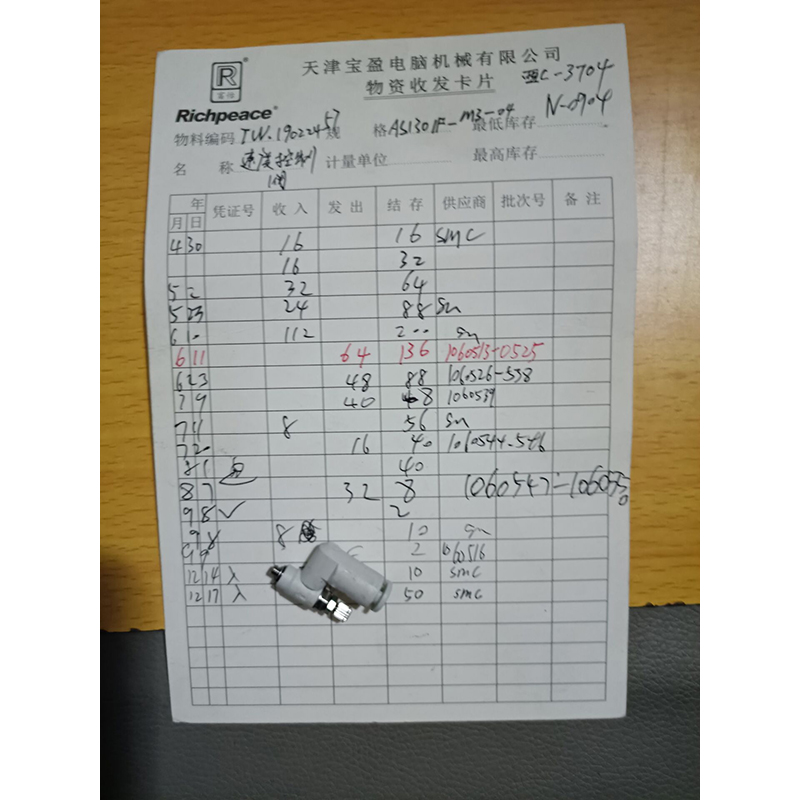 R
天津宝盈电脑机械有限公司
物资收发卡片
C-3704
Richpeace
N-0904
物料编码 IW.1902245 规 格 AS1301F-M3-04 最低库存
名 称 速度控制阀 计量单位 最高库存
年 凭证号 收入 发出 结存 供应商 批次号 备注
月 日
4 30 16 16 SMC
16 32
5 2 32 64
5 23 24 88
6 10 112 200
6 11 64 136 1060513-0525
6 23 48 88 1060526-538
7 9 40 48 1060539
7 11 8 56
7 20 16 40 1060544-546
8 1 40
8 7 32 8 1060547-1060550
9 8 ✓ 2
9 8 8 10
9 9 2 1060516
12 14 入 10 SMC
12 17 入 50 SMC